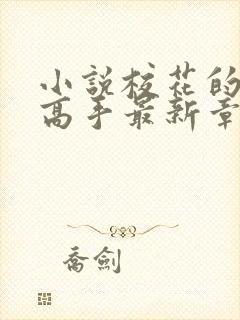 小說校花的
高手最新章
喬劍